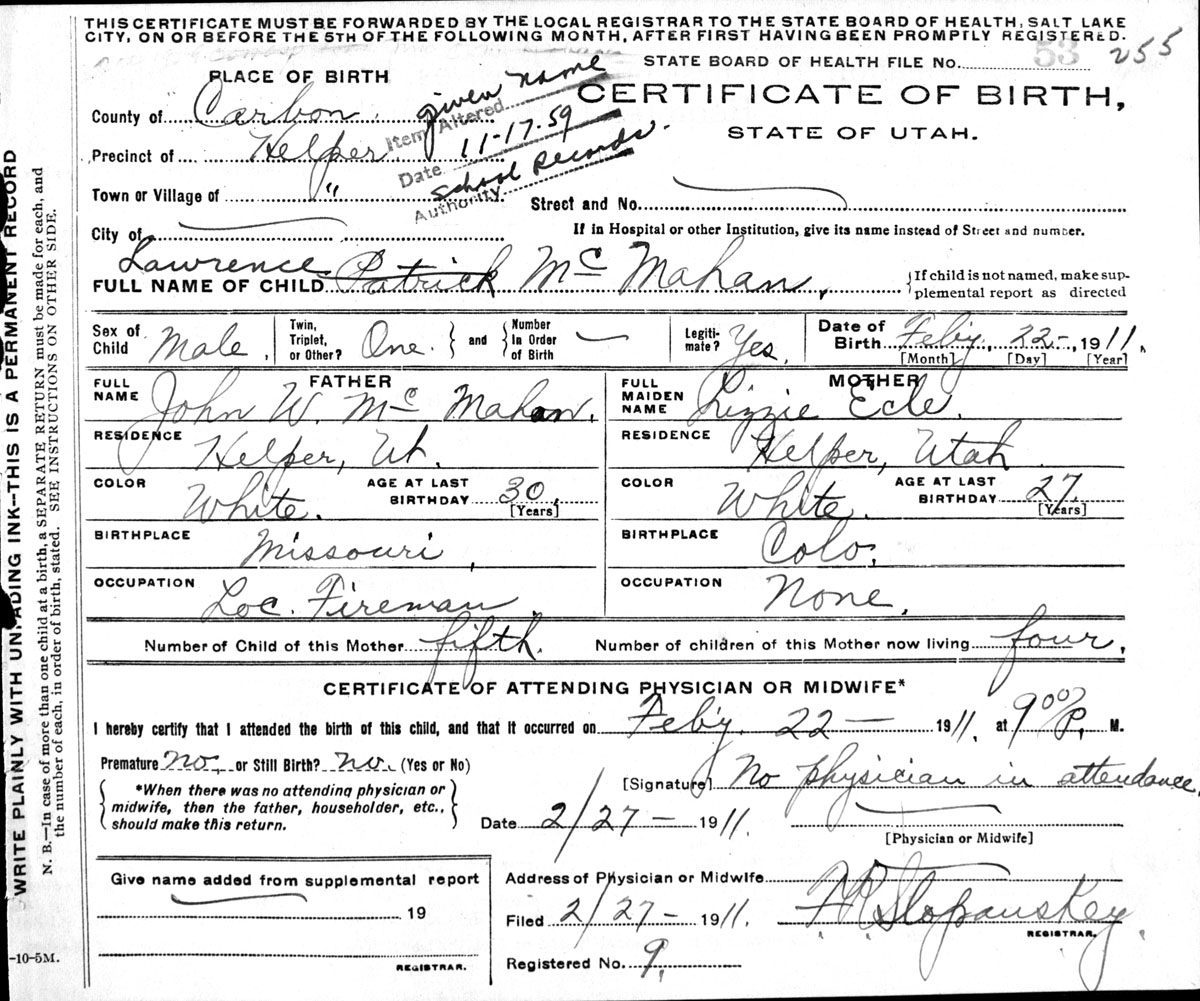 THIS CERTIFICATE MUST BE FORWARDED BY THE LOCAL REGISTRAR TO THE STATE BOARD OF HEALTH, SALT LAKE
CITY, ON OR BEFORE THE 5TH OF THE FOLLOWING MONTH, AFTER FIRST HAVING BEEN PROMPTLY REGISTERED.
STATE BOARD OF HEALTH FILE No. 53 255
PLACE OF BIRTH
CERTIFICATE OF BIRTH,
STATE OF UTAH.
County of Carbon
Item Altered given name
Date 11-17-59
Authority School Records.
Precinct of Helper
Town or Village of "
Street and No.
City of
If in Hospital or other Institution, give its name instead of Street and number.
Lawrence
FULL NAME OF CHILD Patrick Mc Mahan,
{If child is not named, make sup-
plemental report as directed
Sex of Child Male, Twin, Triplet, or Other? One. } and { Number In Order of Birth — Legiti-mate? Yes, Date of Birth Feby. 22-, 1911,
[Month] [Day] [Year]
FATHER
FULL NAME John W. Mc Mahan.
RESIDENCE Helper, Ut.
COLOR White. AGE AT LAST BIRTHDAY 30, [Years]
BIRTHPLACE Missouri,
OCCUPATION Loc. Fireman
MOTHER
FULL MAIDEN NAME Lizzie Ecle.
RESIDENCE Helper, Utah
COLOR White. AGE AT LAST BIRTHDAY 27. [Years]
BIRTHPLACE Colo,
OCCUPATION None,
Number of Child of this Mother fifth. Number of children of this Mother now living four,
CERTIFICATE OF ATTENDING PHYSICIAN OR MIDWIFE*
I hereby certify that I attended the birth of this child, and that it occurred on Feb'y. 22 — 1911, at 9 00 P. M.
Premature no, or Still Birth? no. (Yes or No)
[Signature] No physician in attendance,
{ *When there was no attending physician or
midwife, then the father, householder, etc.,
should make this return. }
Date 2/27 — 1911.
[Physician or Midwife]
Give name added from supplemental report
19
REGISTRAR.
Address of Physician or Midwife
Filed 2/27- 1911. Stopanskey
REGISTRAR.
Registered No. 9,
-10-5M.
WRITE PLAINLY WITH UNFADING INK—THIS IS A PERMANENT RECORD
N. B.—In case of more than one child at a birth, a SEPARATE RETURN must be made for each, and
the number of each, in order of birth, stated. SEE INSTRUCTIONS ON OTHER SIDE.